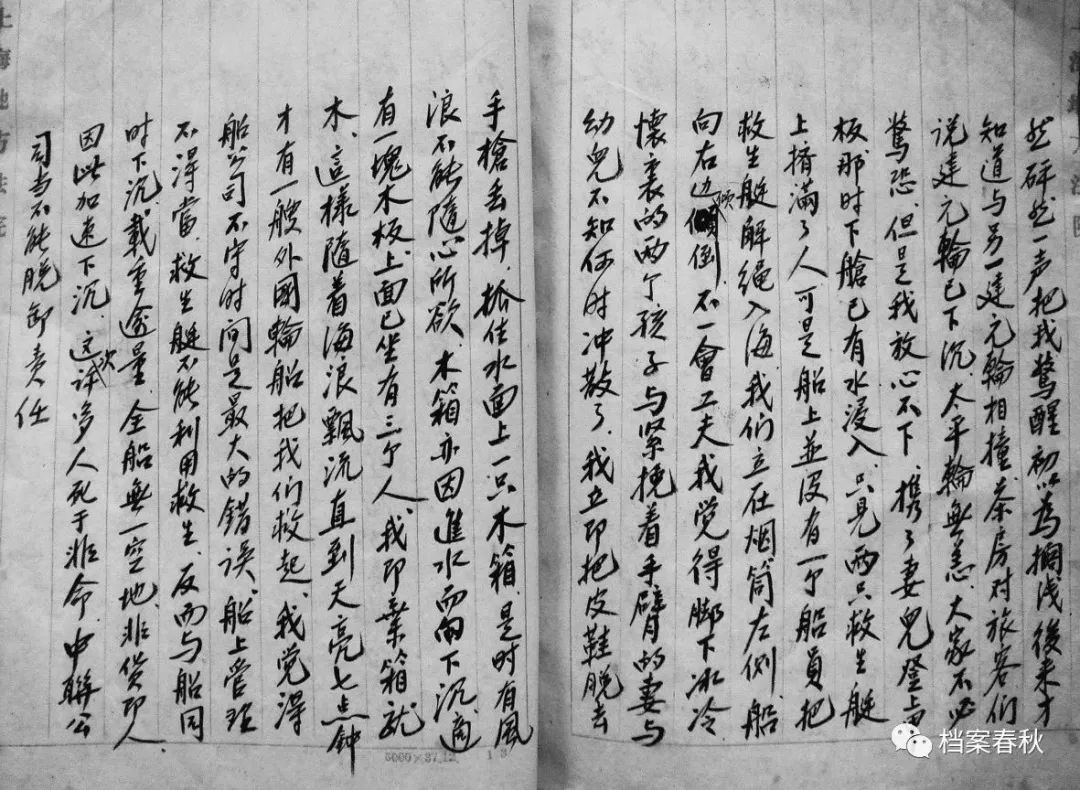 然砰然一声把我驚醒初以為擱浅後来才
知道与另一建元輪相撞.茶房对旅客们
说建元輪已下沉太平輪無恙.大家不必
驚恐.但是我放心不下.携了妻兒登上甲
板那时下艙已有水浸入.只見两只救生艇
上擠滿了人可是船上並没有一个船員把
救生艇解绳入海我们立在烟筒左侧.船
向右边傾倒.不一會工夫我觉得脚下冰冷
懷裏的两个孩子与紧挽着手臂的妻与
幼兒不知何时冲散了.我立即把皮鞋脱去
手槍丢掉.抓住水面上一只木箱.是时有風
浪不能隨心所欲.木箱亦因進水而下沉.適
有一塊木板上面已坐有三个人.我即棄箱就
木.這樣随着海浪飄流直到天亮七点钟
才有一艘外國輪船把我们救起.我覚得
船公司不守时间是最大的错误.船上管理
不得當.救生艇不能利用救生.反而与船同
时下沉.載重逾量.全船無一空地.非货即人.
因此加速下沉.这次许多人死于非命.中聯公
司当不能脱卸責任
上海地方法院
5000×37.12
档案春秋